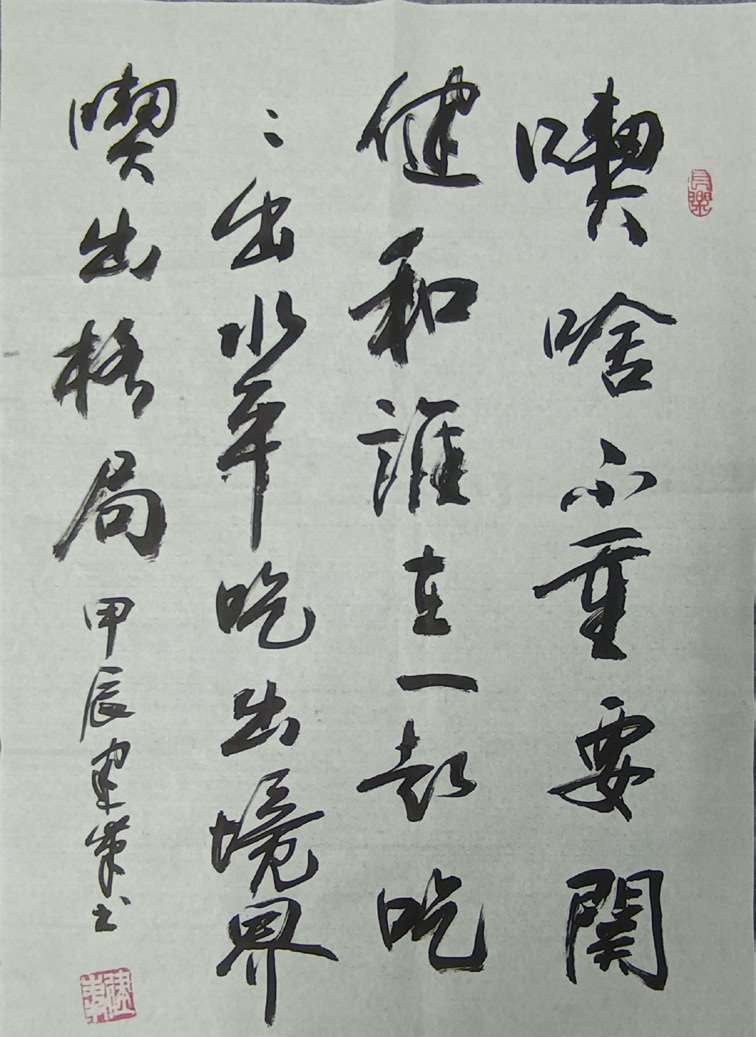 喫啥不重要関
健和誰在一起吃
〻出水平吃出境界
喫出格局
甲辰建業书